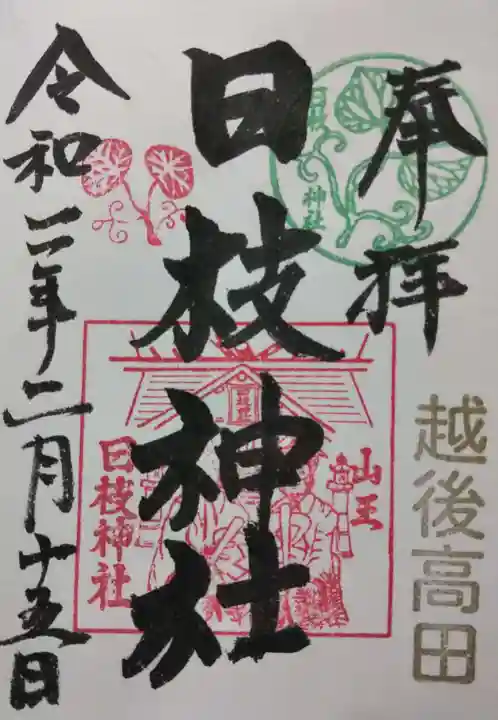 奉拝
日枝神社
神社
越後高田
山王
日枝神社
令和二年二月十五日